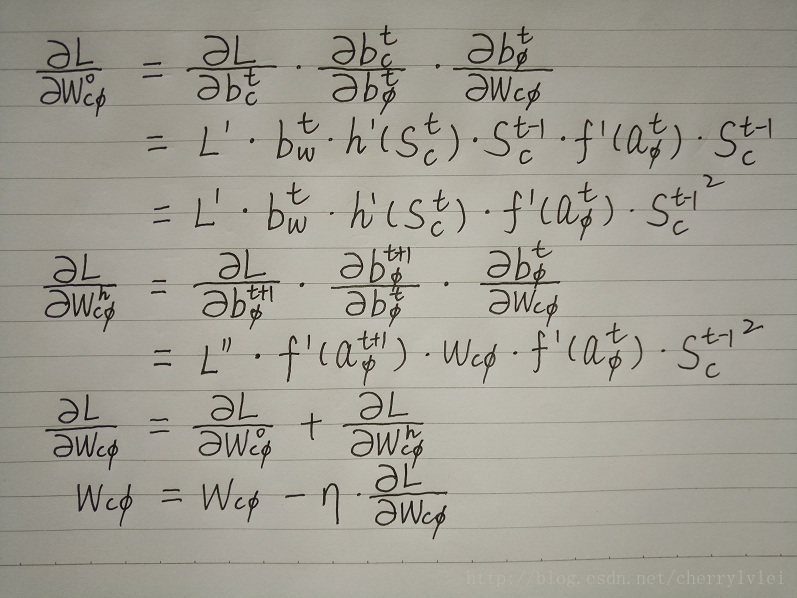 ∂L/∂W_{cϕ}^{o} = ∂L/∂b_c^t · ∂b_c^t/∂b_ϕ^t · ∂b_ϕ^t/∂W_{cϕ}
= L' · b_w^t · h'(S_c^t) · S_c^{t-1} · f'(a_ϕ^t) · S_c^{t-1}
= L' · b_w^t · h'(S_c^t) · f'(a_ϕ^t) · S_c^{t-1 2}
∂L/∂W_{cϕ}^{h} = ∂L/∂b_ϕ^{t+1} · ∂b_ϕ^{t+1}/∂b_ϕ^t · ∂b_ϕ^t/∂W_{cϕ}
= L'' · f'(a_ϕ^{t+1}) · W_{cϕ} · f'(a_ϕ^t) · S_c^{t-1 2}
∂L/∂W_{cϕ} = ∂L/∂W_{cϕ}^{o} + ∂L/∂W_{cϕ}^{h}
W_{cϕ} = W_{cϕ} - η · ∂L/∂W_{cϕ}
http://blog.csdn.net/cherrylvlei